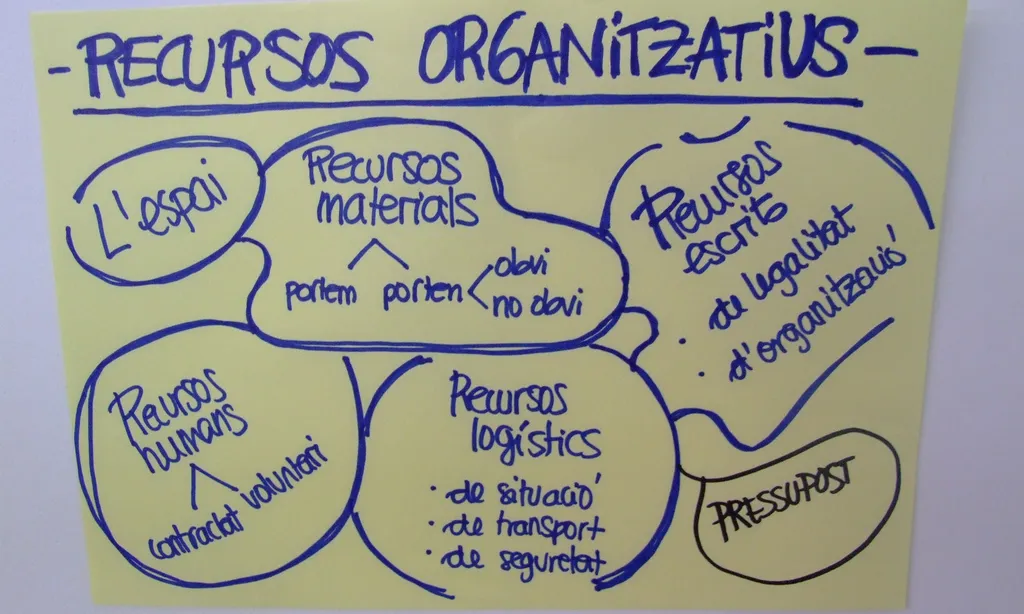 - RECURSOS ORGANITZATIUS -
L'espai
Recursos
materials
portem porten
obvi
no obvi
Recursos
escrits
· de legalitat
· d'organització
Recursos
humans
contractat voluntari
Recursos
logístics
· de situació
· de transport
· de seguretat
PRESSUPOST